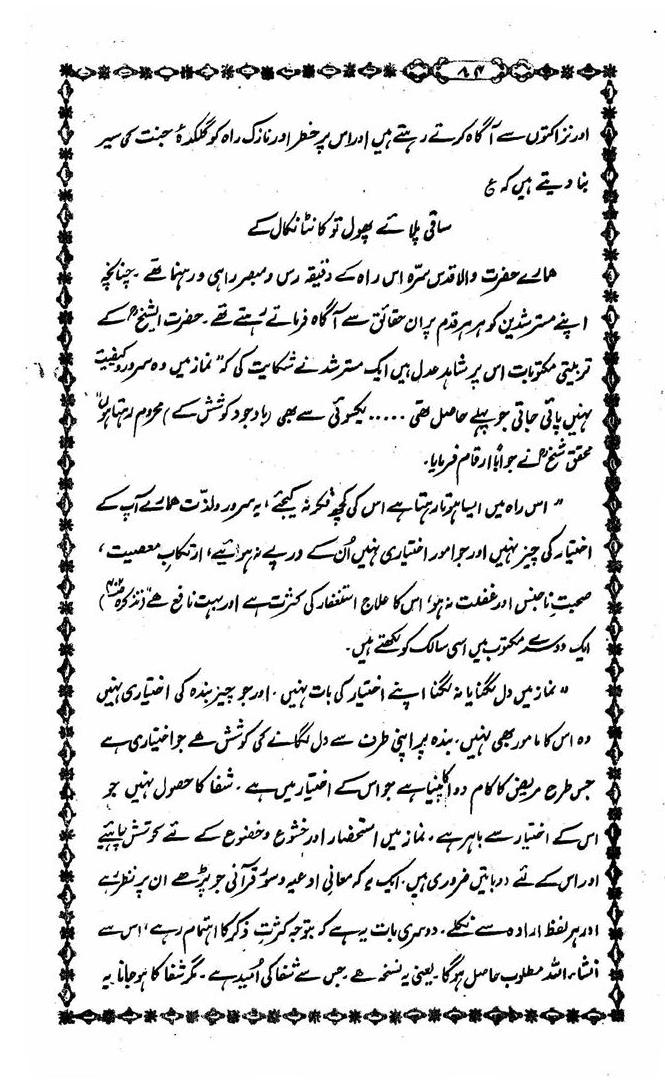 ۸۴
اور نزاکتوں سے آگاہ کرتے رہتے ہیں اور اس پر خطر اور نازک راہ کو گلکدۂ جنت کی سیر
بنا دیتے ہیں کہ ع
ساقی پلائے پھول تو کانٹا نکال کے
ہمارے حضرت والا قدس سرہ اس راہ کے دقیقہ رس و مبصر راہی و رہنما تھے۔ چنانچہ
اپنے مسترشدین کو ہر ہر قدم پر ان حقائق سے آگاہ فرماتے رہتے تھے۔ حضرت الشیخؒ کے
تربیتی مکتوبات اس پر شاہد عدل ہیں ایک مسترشد نے شکایت کی کہ "نماز میں وہ سرور و کیفیت
نہیں پائی جاتی جو پہلے حاصل تھی ..... یکسوئی سے بھی (باوجود کوشش کے) محروم رہتا ہوں"
محقق شیخؒ نے جواباً ارقام فرمایا۔
"اس راہ میں ایسا ہوتا رہتا ہے اس کی کچھ فکر نہ کیجئے، یہ سرور و لذت ہمارے آپ کے
اختیار کی چیز نہیں اور جو امور اختیاری نہیں اُن کے درپے نہ ہوئیے، ارتکابِ معصیت،
صحبتِ ناجنس اور غفلت نہ ہو، اس کا علاج استغفار کی کثرت ہے اور بہت نافع ہے" (تذکرہ ص۴۰۲)
ایک دوسرے مکتوب میں اسی سالک کو لکھتے ہیں۔
"نماز میں دل لگنا یا نہ لگنا اپنے اختیار کی بات نہیں۔ اور جو چیز بندہ کی اختیاری نہیں
وہ اس کا مامور بھی نہیں۔ بندہ پر اپنی طرف سے دل لگانے کی کوشش ہے جو اختیاری ہے
جس طرح مریض کا کام دوا کا پینا ہے جو اس کے اختیار میں ہے۔ شفا کا حصول نہیں جو
اس کے اختیار سے باہر ہے۔ نماز میں استحضار اور خشوع و خضوع کے لئے کوشش چاہئیے
اور اس کے لئے دو باتیں ضروری ہیں۔ ایک یہ کہ معانی ادعیہ و سور قرآنی جو پڑھے ان پر نظر رہے
اور ہر لفظ ارادہ سے نکلے۔ دوسری بات یہ ہے کہ بتوجہ کثرتِ ذکر کا اہتمام رہے، اس سے
انشاء اللہ مطلوب حاصل ہو گا۔ یعنی یہ نسخہ ہے جس سے شفا کی اُمید ہے۔ مگر شفا کا ہو جانا یہ